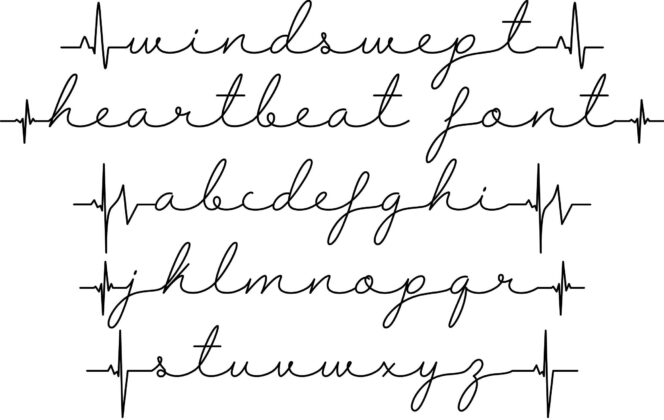 windswept
heartbeat font
abcdefghi
jklmnopqr
stuvwxyz